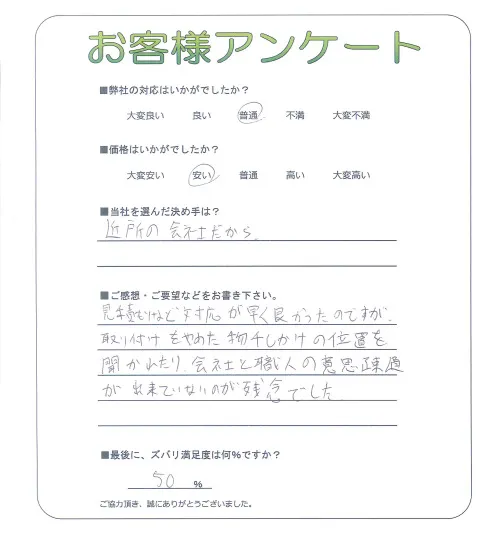 お客様アンケート
■弊社の対応はいかがでしたか？
大変良い 良い 普通 不満 大変不満
■価格はいかがでしたか？
大変安い 安い 普通 高い 大変高い
■当社を選んだ決め手は？
近所の会社だから。
■ご感想・ご要望などをお書き下さい。
見積もりなど対応が早く良かったのですが、
取り付けをやめた物干しかけの位置を
聞かれたり、会社と職人の意思疎通
が出来ていないのが残念でした
■最後に、ズバリ満足度は何％ですか？
50 ％
ご協力頂き、誠にありがとうございました。